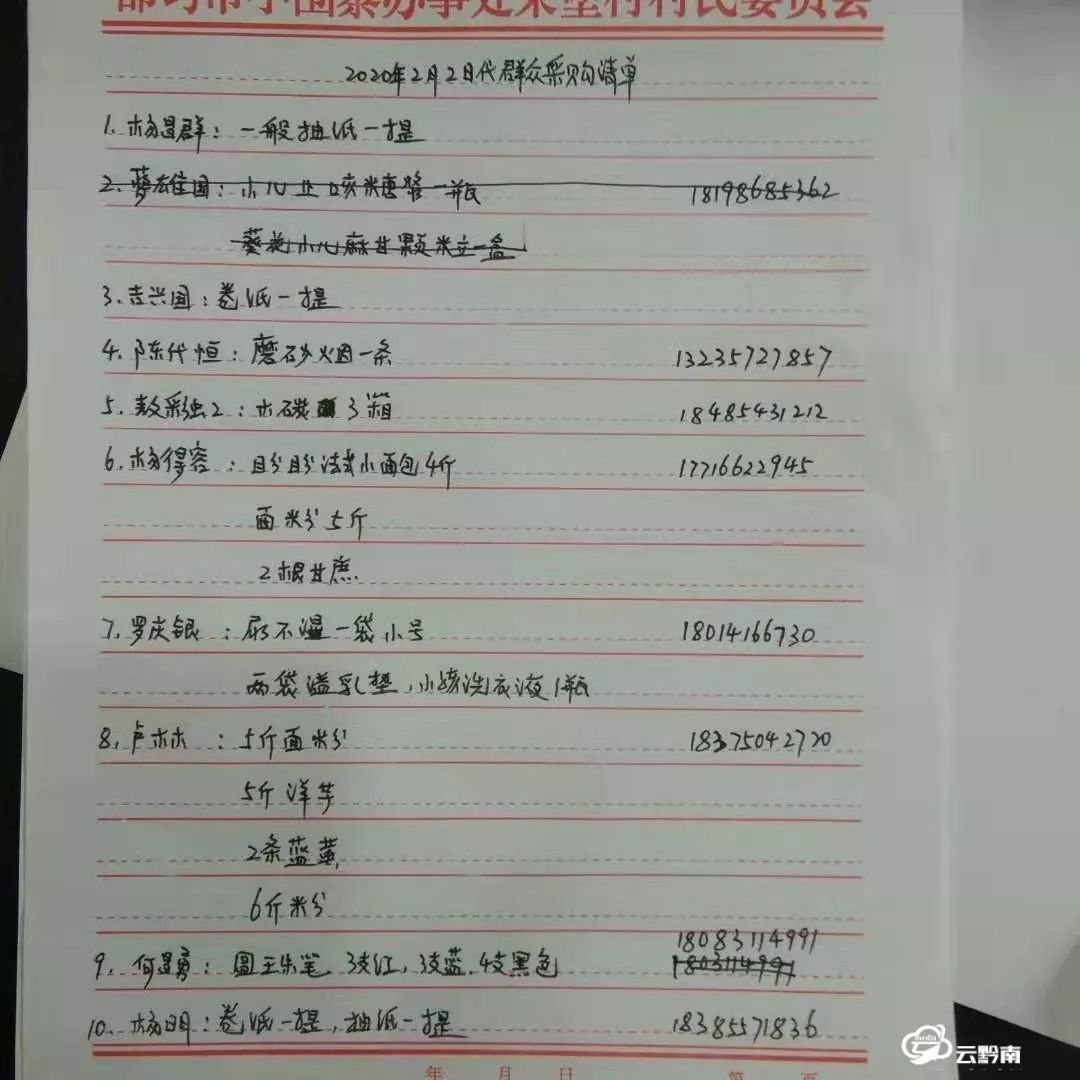 都匀市小围寨办事处 村村民委员会
2020年2月2日代群众采购清单
1.杨昌群：一般抽纸一提
2. 雄国： 小儿止咳 一瓶 18198685362
葵花小儿麻甘颗粒一盒
3.吉兴国：卷纸一提
4.陈代恒：磨砂烟一条 13235727857
5. 彩 2： 3箱 18485431212
6.杨得容：盼盼法式小面包4斤 17716622945
面粉5斤
2根甘蔗
7.罗庆银：尿不湿一袋小号 18014166730
两袋溢乳垫，小孩洗衣液1瓶
8.卢林：5斤面粉 18375042720
5斤洋芋
2条蓝黄
6斤米分
18083114991
9.何昌勇：圆王朱笔，3支红，3支蓝，4支黑色 1803114991
10.杨明：卷纸一提，抽纸一提 18385571836
年 月 日 第 页
media
云黔南